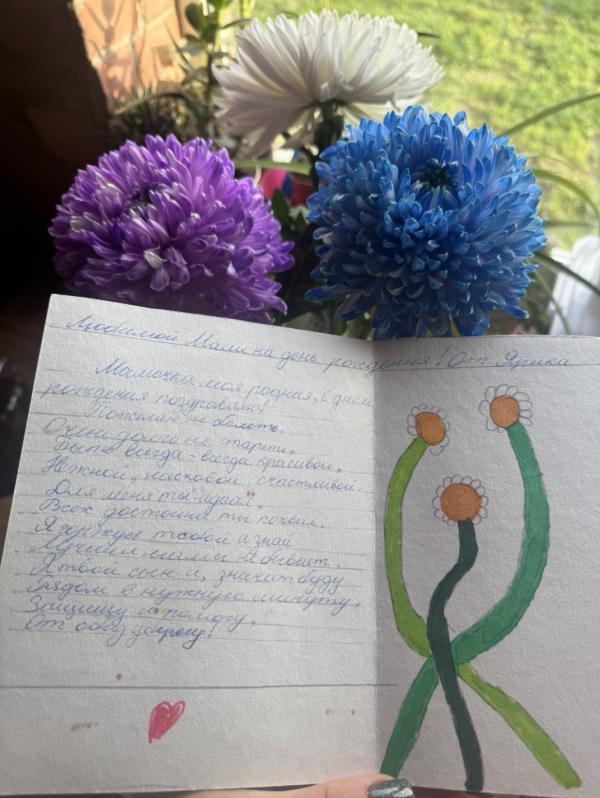 Любимой Маме на день рождения! От Ярика
Мамочка моя родная, с днём
рождения поздравляю!
Пожелаю не болеть,
Очень долго не стареть,
Быть всегда-всегда красивой,
Нежной, ласковой, счастливой.
Для меня ты идеал,
Всех достойна ты похвал.
Я горжусь тобой и знай
Лучшей мамы не бывает.
Я твой сын и, значит буду
Рядом в нужную минуту.
Защищу и помогу.
От